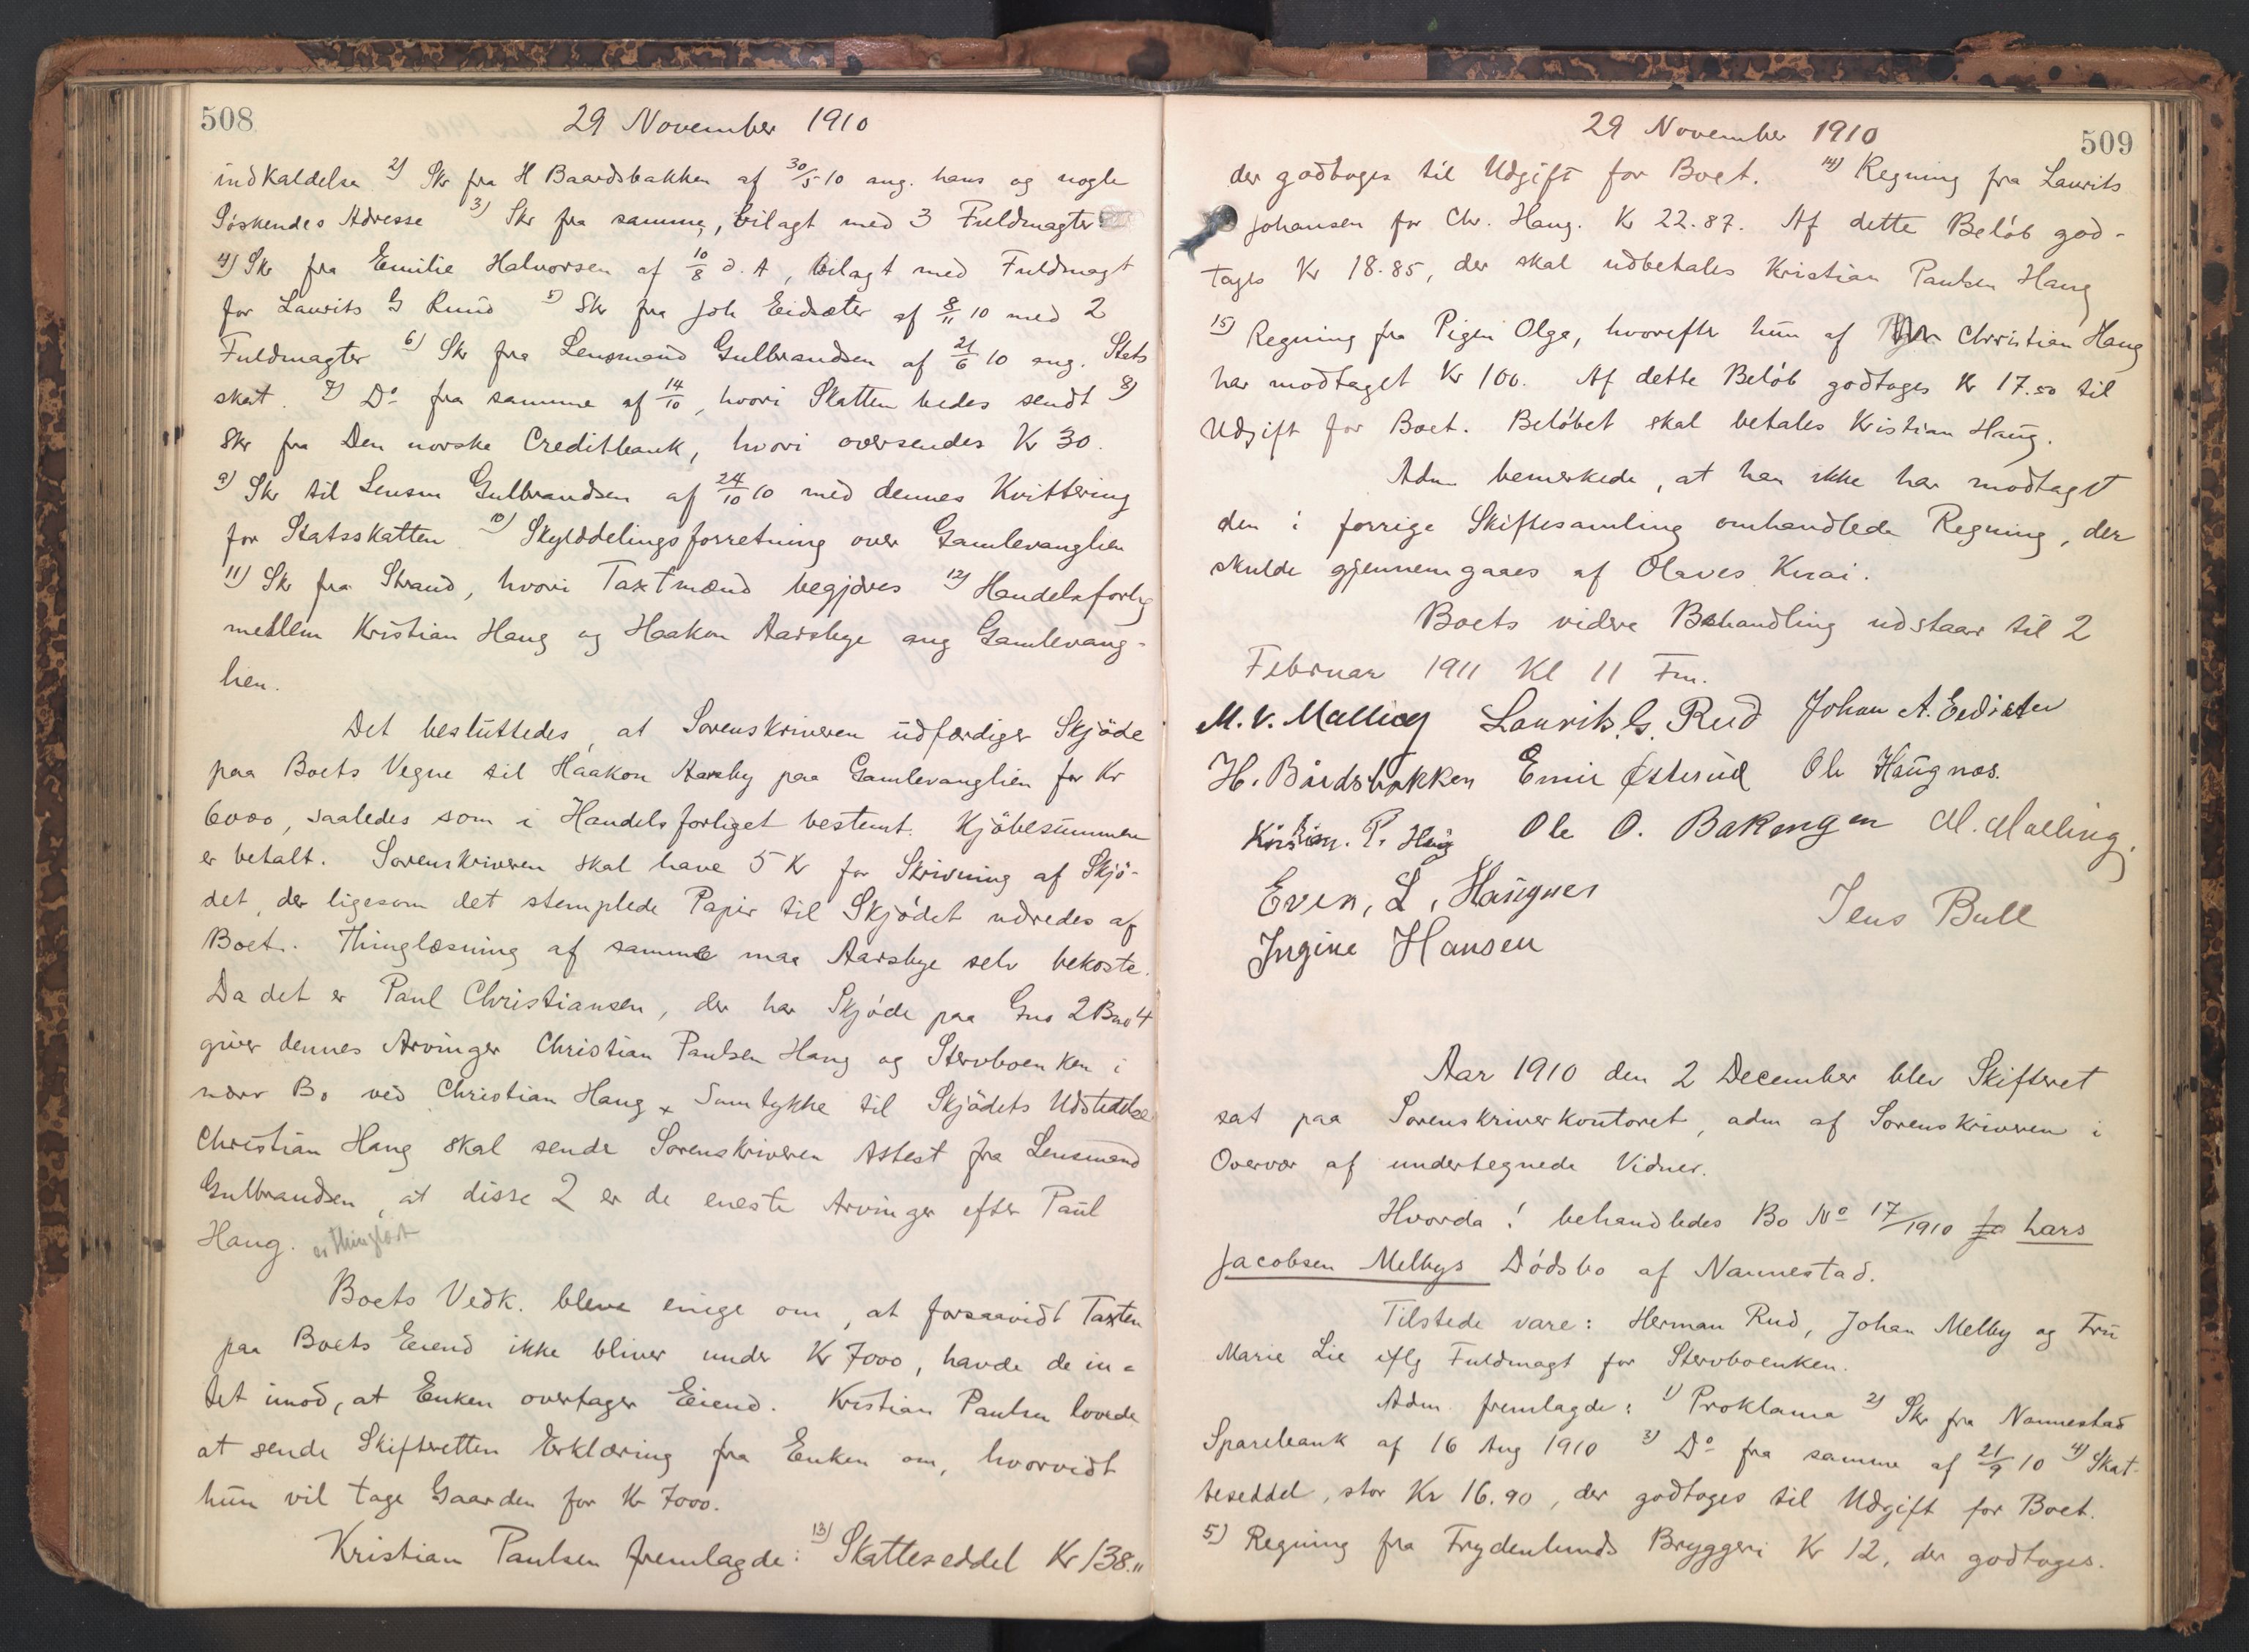 508
29 November 1910
indkaldelse 2) Skr fra H Baardsbakken af 30/5 10 ang. hans og nogle
Søskendes Adresse 3) Skr fra samme, bilagt med 3 Fuldmagter
4) Skr fra Emilie Halvorsen af 10/8 d. A, bilagt med Fuldmagt
for Laurits G Ruud 5) Skr fra Joh Eidsæter af 8/11 10 med 2
Fuldmagter 6) Skr fra Lensmand Gulbrandsen af 21/6 10 ang. Stats
skat. 7) Do fra samme af 14/10, hvori Skatten bedes sendt 8)
Skr fra Den norske Creditbank, hvori oversendes Kr 30.
9) Skr til Lensm Gulbrandsen af 24/10 10 med dennes Kvittering
for Statsskatten 10) Skylddelingsforretning over Gamlevanglien
11) Skr fra Strand, hvori Taxtmænd begjæres 12) Handelsforlig
mellem Kristian Haug og Haakon Aarsbye ang Gamlevang-
lien.
Det besluttedes, at Sorenskriveren udfærdiger Skjöde
paa Boets Vegne til Haakon Aarsby paa Gamlevanglien for Kr
6000, saaledes som i Handelsforliget bestemt. Kjöbesummen
er betalt. Sorenskriveren skal have 5 Kr for Skrivning af Skjö-
det, der ligesom det stemplede Papir til Skjödet udredes af
Boet. Thinglæsning af samme maa Aarsbye selv bekoste.
Da det er Paul Christiansen, der har Skjøde paa Gno 2 Bno 4
giver dennes Arvinger Christian Paulsen Haug og Stervboenken i
nærv Bo ved Christian Haug x Samtykke til Skjödets Udstedelse
Christian Haug skal sende Sorenskriveren Attest fra Lensmand
Gulbrandsen, at disse 2 er de eneste Arvinger efter Paul
Haug. er thinglæst
Boets Vedk. bleve enige om, at forsaavidt Taxten
paa Boets Eiend ikke bliver under Kr 7000, havde de in-
tet imod, at Enken overtager Eiend. Kristian Paulsen lovede
at sende Skifteretten Erklæring fra Enken om, hvorvidt
hun vil tage Gaarden for Kr 7000.
Kristian Paulsen fremlagde: 13) Skatteseddel Kr 138."
29 November 1910
509
der godtoges til Udgift for Boet. 14) Regning fra Laurits
Johansen for Chr. Haug. Kr 22.87. Af dette Beløb god-
tages Kr 18.85, der skal udbetales Kristian Paulsen Haug
15) Regning fra Pigen Olga, hvorefter hun af Christian Haug
har modtaget Kr 100. Af dette Beløb godtoges Kr 17.50 til
Udgift for Boet. Beløbet skal betales Kristian Haug.
Adm bemerkede, at han ikke har modtaget
den i forrige Skiftesamling omhandlede Regning, der
skulde gjennemgaaes af Olaves Kirai.
Boets videre Behandling udstaar til 2
Februar 1911 Kl 11 Fm.
M. V. Malling Laurits. G. Rud Johan A. Eedsæter
H. Bårdsbakken Emil Østerud Ole Haugnæs.
Kristian. P. Haug Ole O. Bakengen M. Malling,
Even, L, Haugnes
Jens Bull
Ingine Hansen
Aar 1910 den 2 December blev Skifteret
sat paa Sorenskriverkontoret, adm af Sorenskriveren i
Overvær af undertegnede Vidner.
Hvorda! behandledes Bo No 17/1910 Ja Lars
Jacobsen Melbys Dødsbo af Nannestad.
Tilstede vare: Herman Rud, Johan Melby og Fru
Marie Lie iflg Fuldmagt for Stervboenken.
Adm. fremlagde: 1) Proklama 2) Skr fra Nannestad
Sparebank af 16 Aug 1910 3) Do fra samme af 21/9 10 4) Skat-
teseddel, stor Kr 16.90, der godtoges til Udgift for Boet.
5) Regning fra Frydenlunds Bryggeri Kr 12, der godtoges.